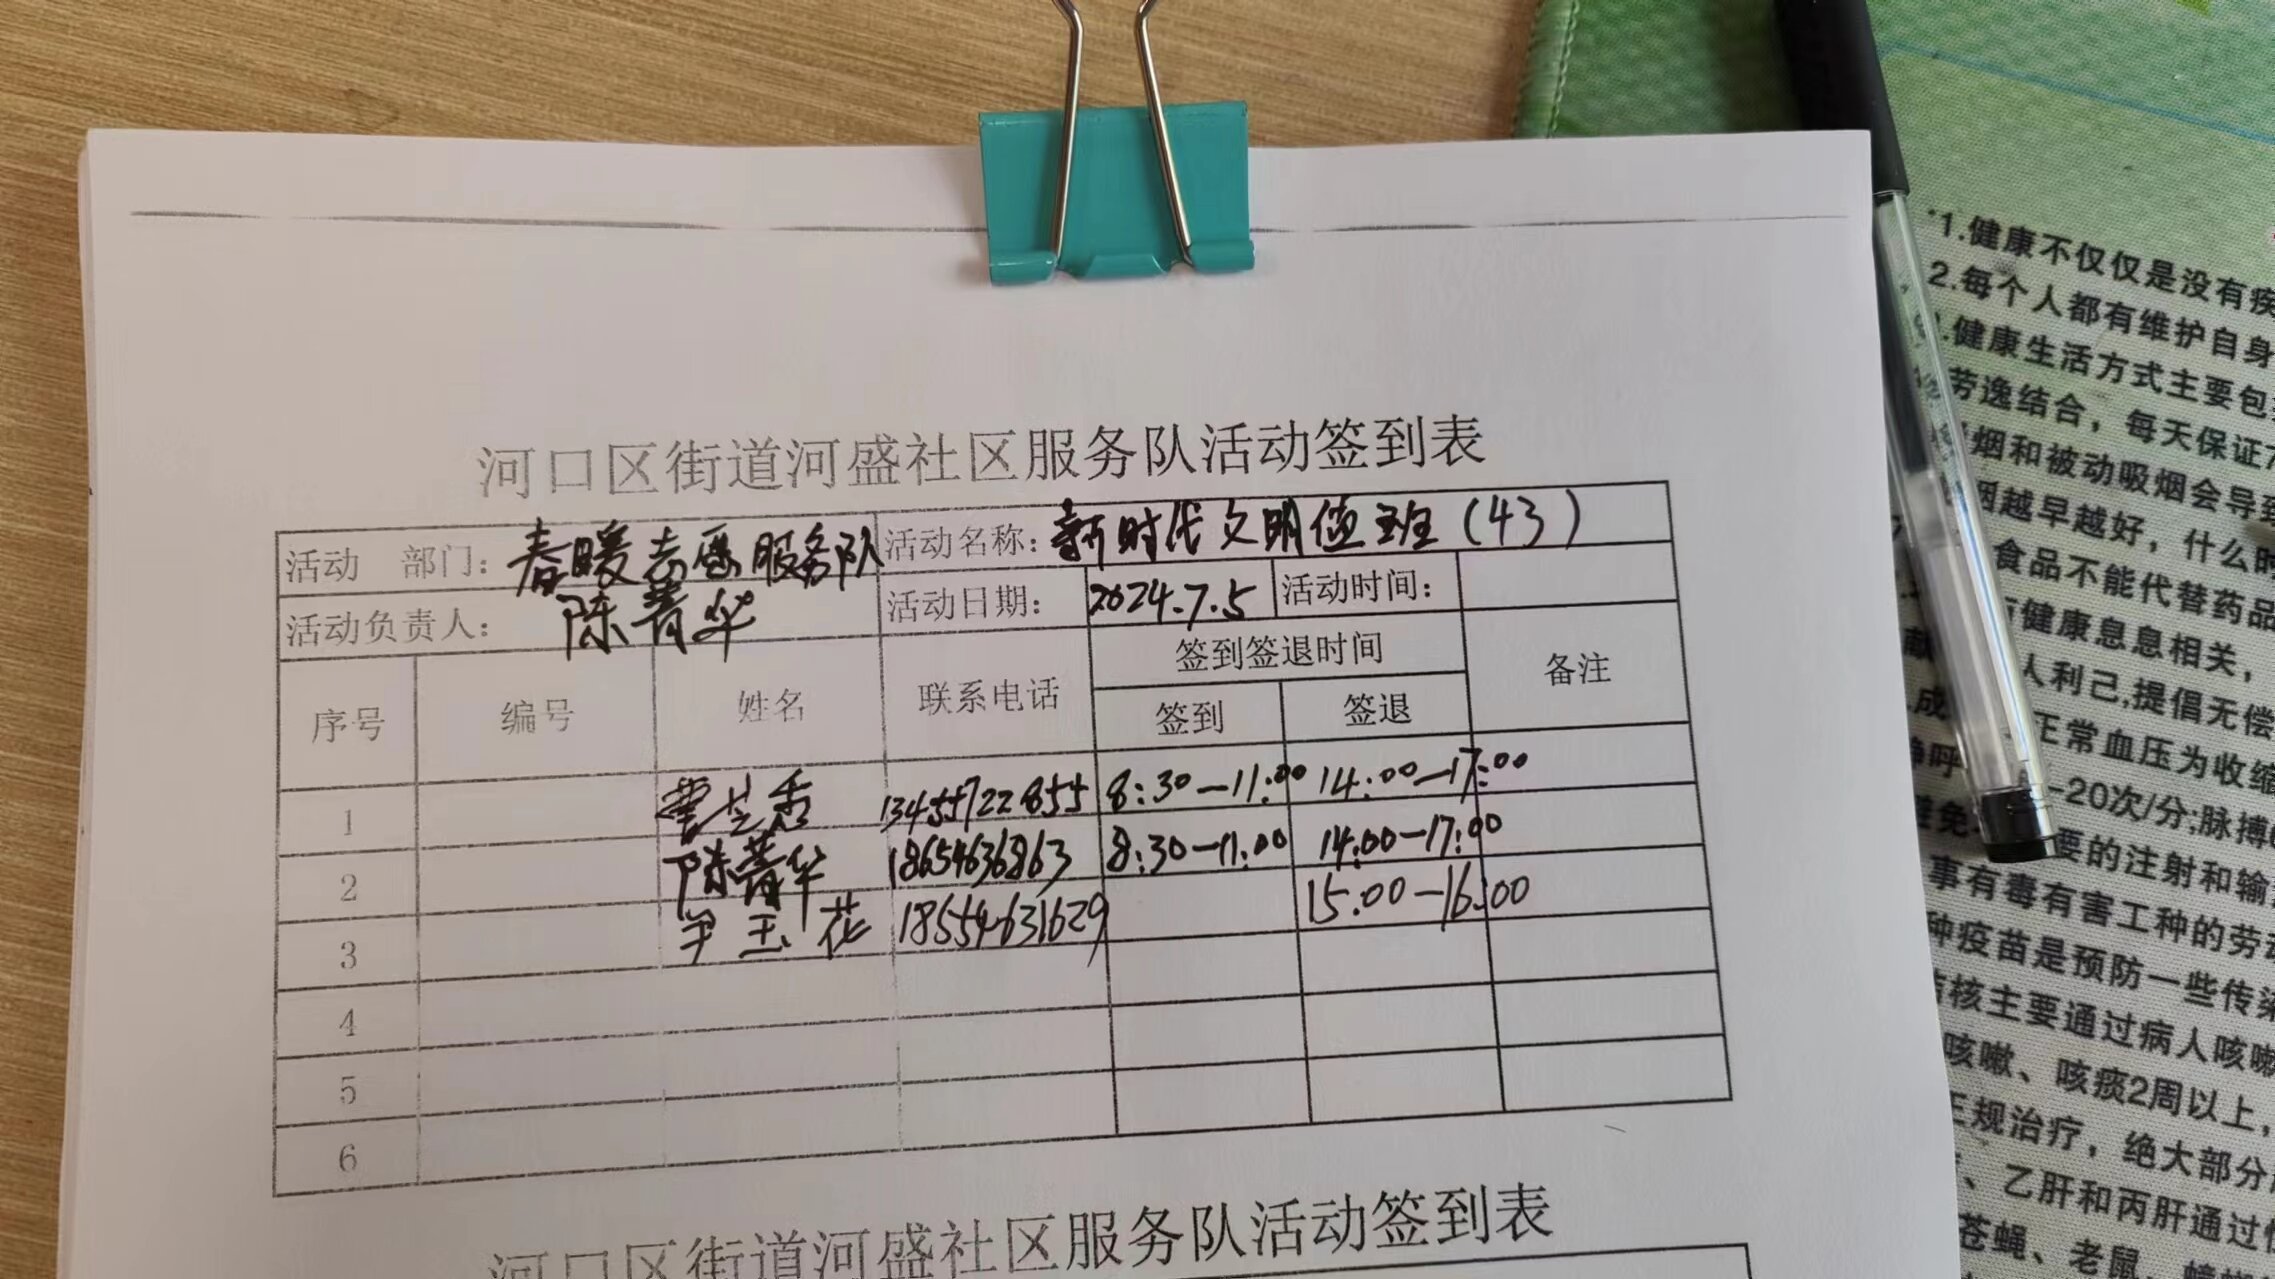 河口区街道河盛社区服务队活动签到表
活动 部门： 春暖志愿服务队 活动名称： 新时代文明值班（43）
活动负责人： 陈菁华 活动日期： 2024.7.5 活动时间：
序号 编号 姓名 联系电话 签到签退时间 备注
签到 签退
1 13455722855 8:30—11:00 14:00—17:00
2 陈菁华 18654636863 8:30—11:00 14:00—17:00
3 玉花 18554631629 15:00—16:00
4
5
6
河口区街道河盛社区服务队活动签到表
1.健康不仅仅是没有疾
2.每个人都有维护自身
.健康生活方式主要包
劳逸结合，每天保证7
烟和被动吸烟会导到
烟越早越好，什么时
食品不能代替药品
健康息息相关，
献 人利己,提倡无偿
成 正常血压为收缩
呼 -20次/分;脉搏
避免 要的注射和输
事有毒有害工种的劳动
种疫苗是预防一些传染
核主要通过病人咳嗽
咳嗽、咳痰2周以上，
正规治疗，绝大部分
、乙肝和丙肝通过
苍蝇、老鼠、蟑螂